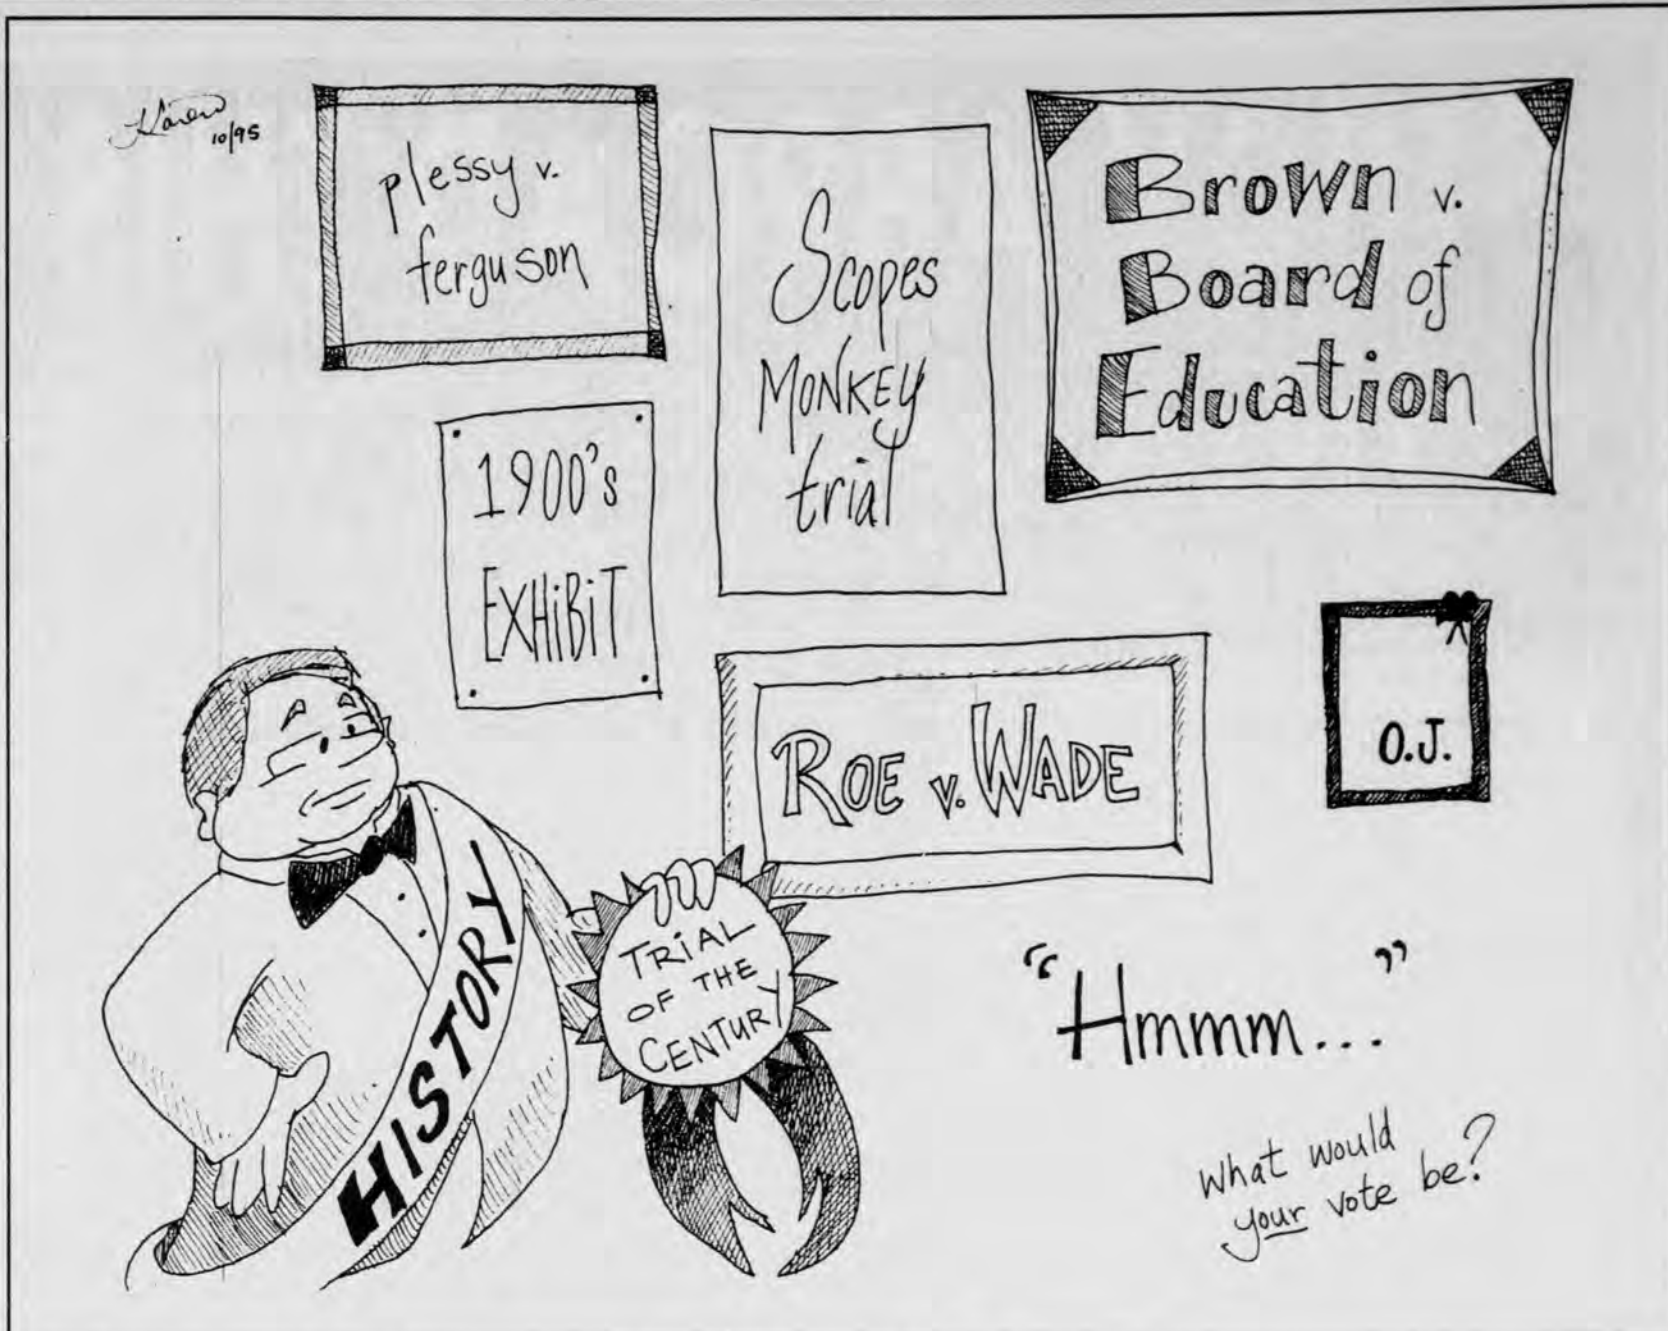 Karen
10/95
plessy v.
ferguson
Scopes
MONKEY
trial
Brown v.
Board of
Education
1900's
EXHiBiT
ROE v. WADE
O.J.
HISTORY
TRiAL
OF THE
CENTURY
"Hmmm..."
what would
your vote be?